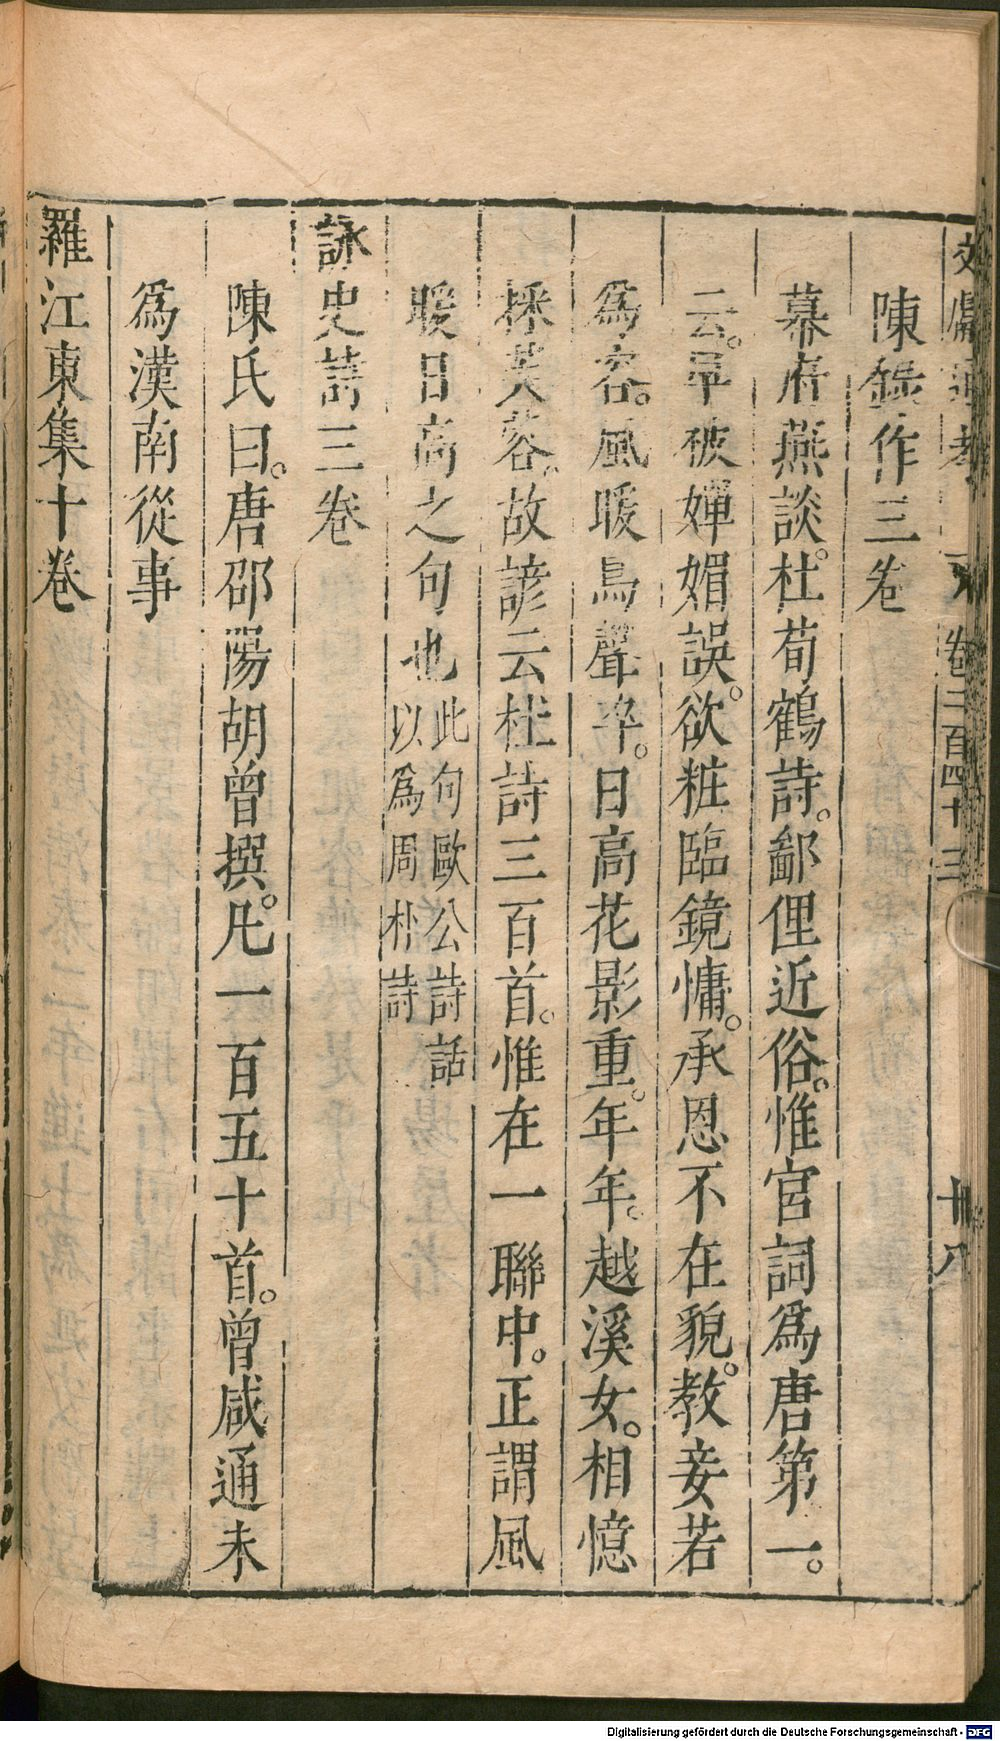 文獻通考 卷二百四十三 十八
陳錄作三卷
幕府燕談。杜荀鶴詩。鄙俚近俗。惟宮詞爲唐第一。
云。早被嬋媚誤。欲粧臨鏡慵。承恩不在貌。教妾若
爲容。風暖鳥聲碎。日高花影重。年年。越溪女。相憶
採芙蓉。故諺云杜詩三百首。惟在一聯中。正謂風
暖日高之句也此句歐公詩話以爲周朴詩
詠史詩三卷
陳氏曰。唐邵陽胡曾撰。凡一百五十首。曾咸通末
爲漢南從事
羅江東集十卷
Digitalisierung gefördert durch die Deutsche Forschungsgemeinschaft - DFG